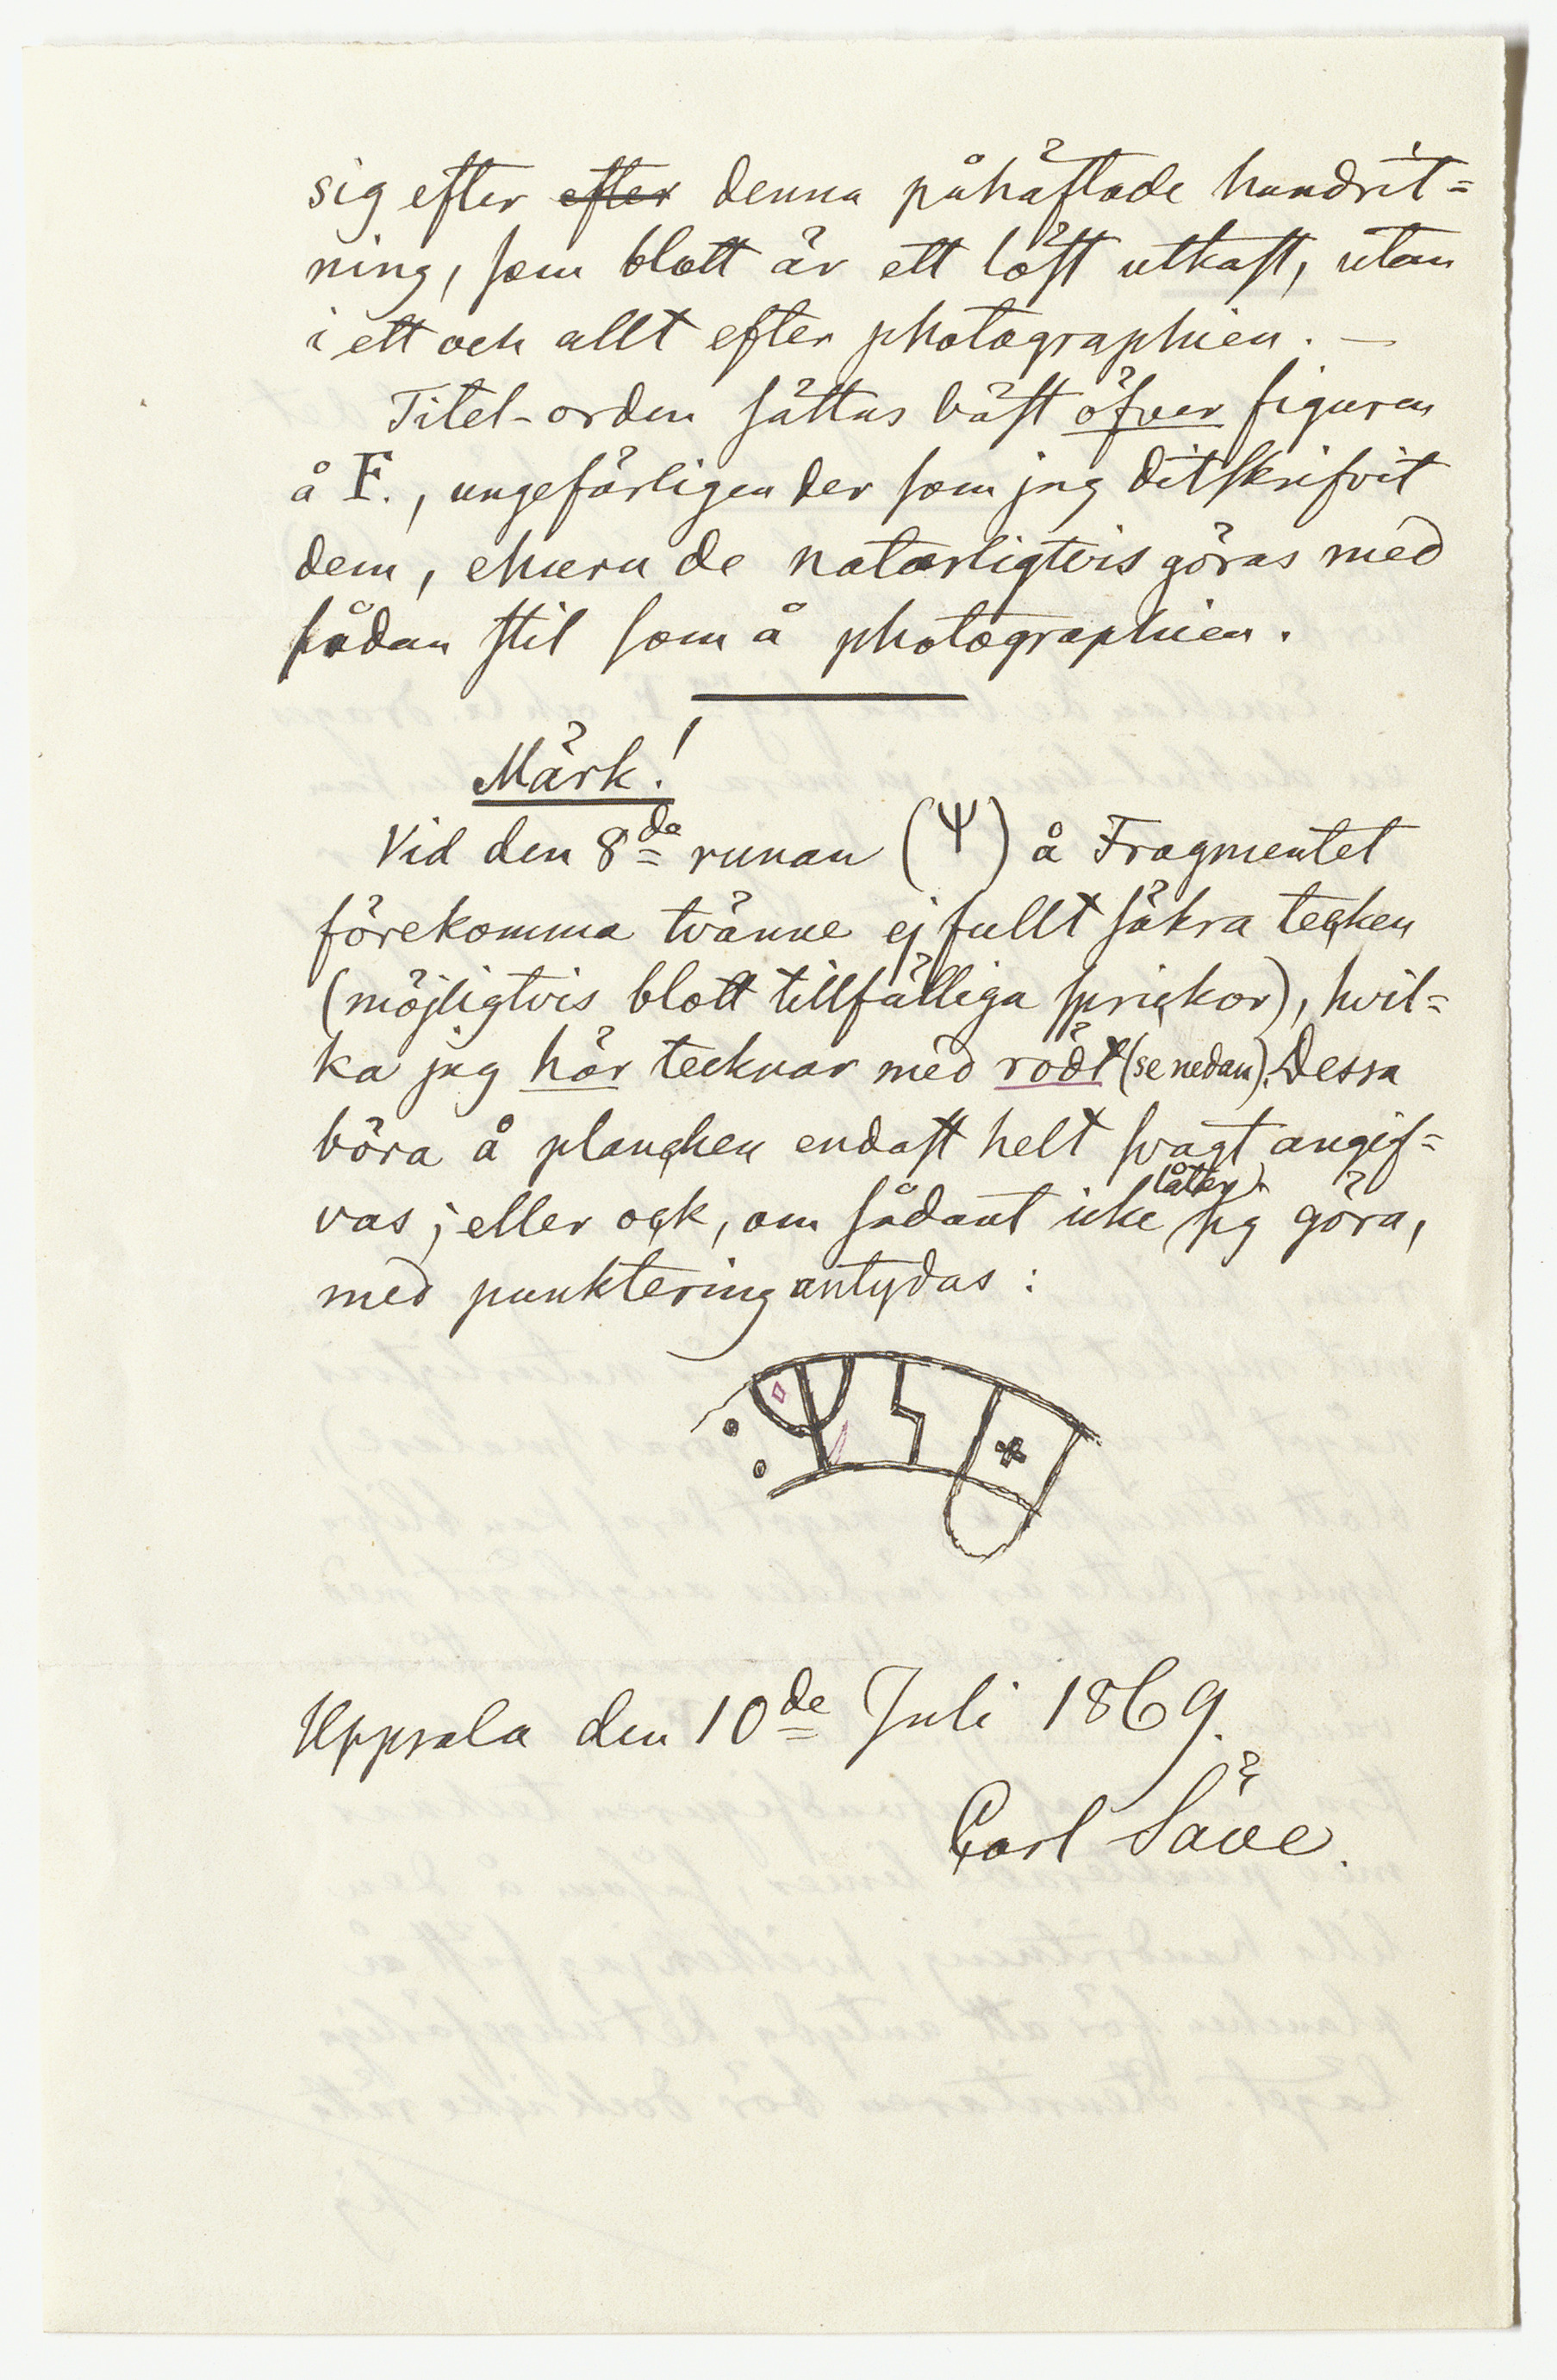 sig efter efter denna påhäftade handrit=
ning, som blott är ett löst utkast, utan
i ett och allt efter photographien. —
Titel-orden sättas bäst öfver figuren
å F., ungefärligen der som jag ditskrifvit
dem, ehuru de naturligtvis göras med
sådan stil som å photographien.
Märk!
Vid den 8de runan (Ψ) å Fragmentet
förekomma tvänne ej fullt säkra tecken
(möjligtvis blott tillfälliga sprickor), hvil=
ka jag här tecknar med rödt (se nedan). Dessa
böra å planchen endast helt svagt angif=
vas; eller ock, om sådant icke låter sig göra,
med punktering antydas:
Uppsala den 10de Juli 1869.
Carl Säve.